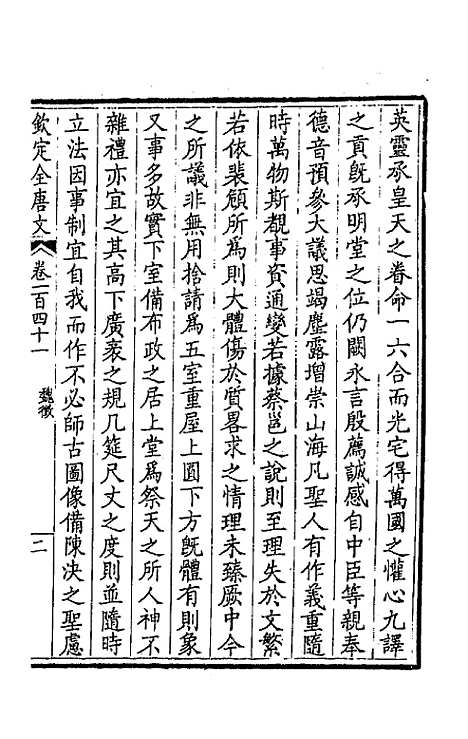 英靈承皇天之眷命一六合而光宅得萬國之懽心九譯
之貢旣承明堂之位仍闕永言殷薦誠感自中臣等親奉
德音預參大議思竭塵露增崇山海凡聖人有作義重隨
時萬物斯覩事資通變若據蔡邕之說則至理失於文繁
若依裴頠所爲則大體傷於質畧求之情理未臻厥中今
之所議非無用捨請爲五室重屋上圓下方旣體有則象
又事多故實下室備布政之居上堂爲祭天之所人神不
雜禮亦宜之其高下廣袤之規几筵尺丈之度則並隨時
立法因事制宜自我而作不必師古圖像備陳决之聖慮
欽定全唐文 卷一百四十一 魏徵 二